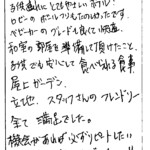 お子様連れに とてもやさしいホテル!
ロビーの ボールプールもたのしかったです。
ベビーカーの グレードも良くて 快適。
和室の お部屋を 準備して頂けたこと、
お子様でも安心して 食べれる食事、
屋上ガーデン
立地、スタッフさんの フレンドリー
全て 満足でした。
機会があれば 必ずリピートしたい